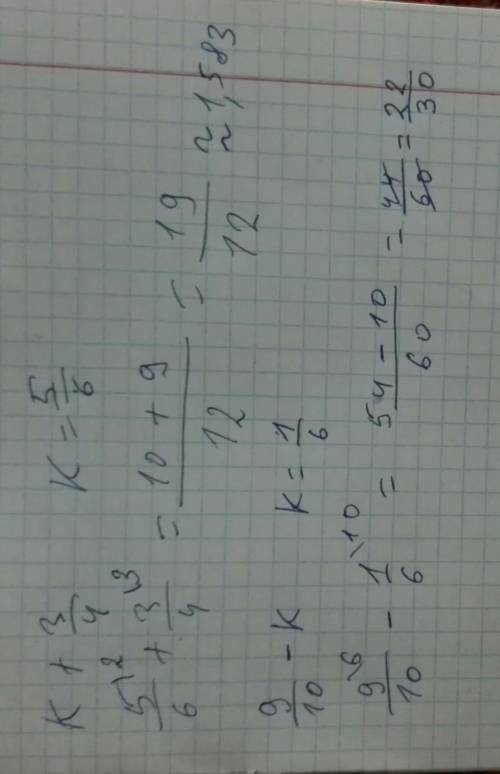 K + 3/4 K = 5/6
5\2/6 + 3\3/4 = 10 + 9/12 = 19/12 ≈ 1,583
9/10 - K K = 1/6
9\6/10 - 1\10/6 = 54 - 10/60 = 44/60 = 22/30